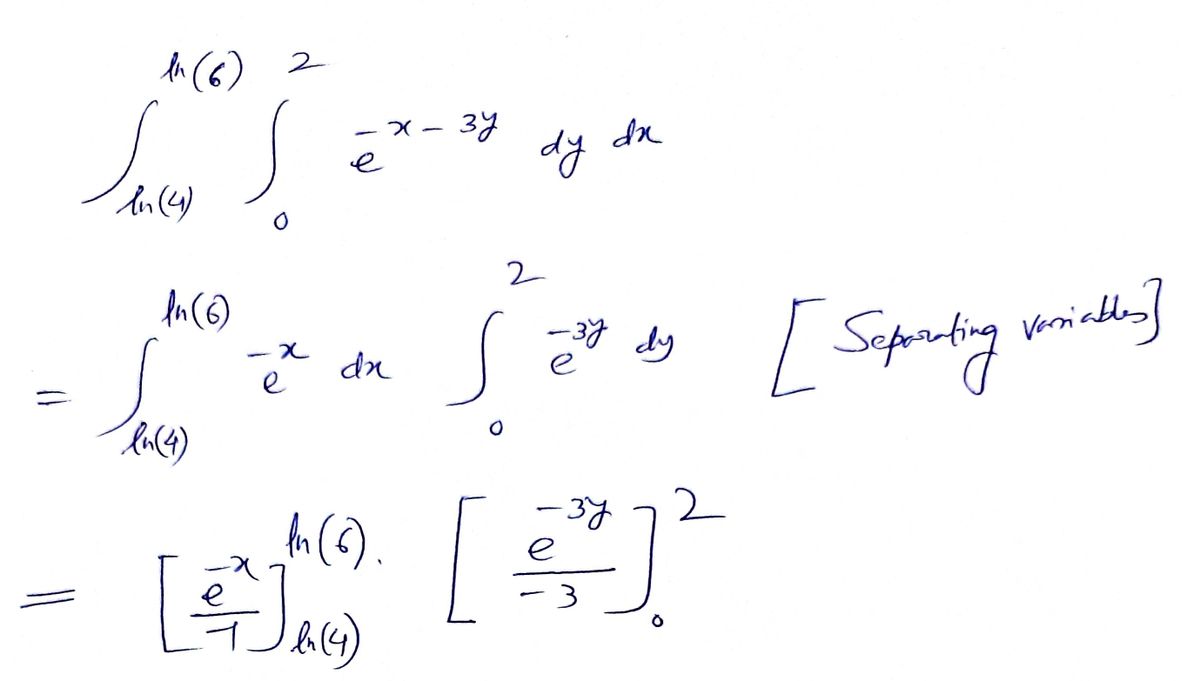 ∫_{ln(4)}^{ln(6)} ∫_{0}^{2} e^{-x-3y} dy dx
= ∫_{ln(4)}^{ln(6)} e^{-x} dx ∫_{0}^{2} e^{-3y} dy [Separating variables]
= [e^{-x}/-1]_{ln(4)}^{ln(6)} . [e^{-3y}/-3]_{0}^{2}